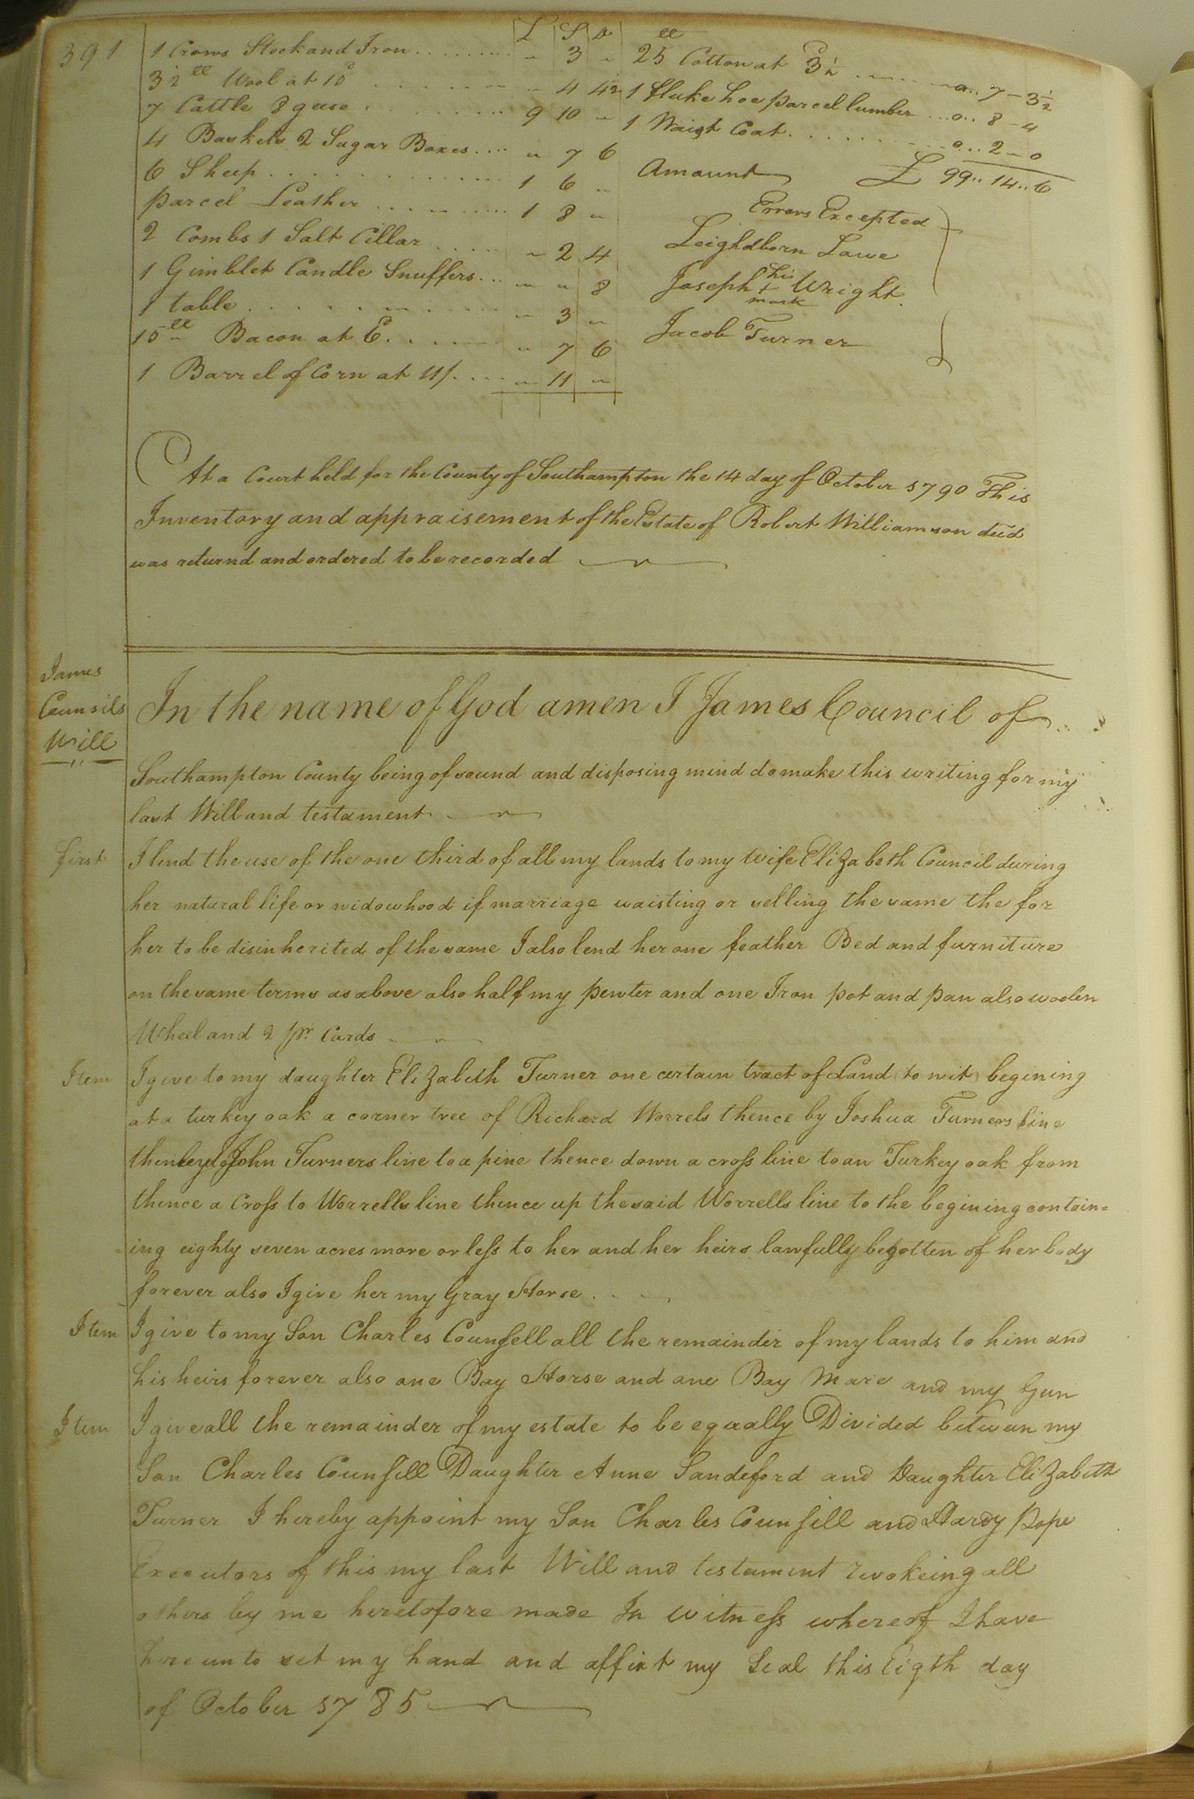 391
£ S D
1 Crows Stock and Iron . . . . . . . . " 3 "
3½ ll Wool at 15d . . . . . . . . " 4 4½
7 Cattle 8 geese . . . . . . . . 9 10 "
4 Baskets 2 Sugar Boxes . . . . " 7 6
6 Sheep . . . . . . . . 1 6 "
parcel Leather . . . . . . . . 1 8 "
2 Combs 1 Salt Cillar . . . . " 2 4
1 Gimblet Candle Snuffers . . . " " 8
1 table . . . . . . . . " 3 "
15 ll Bacon at 6. . . . . . " 7 6
1 Barrel of Corn at 11/. . . . " 11 "
25 ll Cotton at 3½d . . . . 0..7-3½
1 fluke hoe parcel lumber . . . 0..8-4
1 Waist Coat . . . . . . . . 0..2-0
Amount £ 99..14..6
Errors Excepted
Leighdborn Lawe
Joseph his + mark Wright.
Jacob Turner
At a Court held for the County of Southampton the 14 day of October 1790 This
Inventory and appraisement of the Estate of Robert Williamson decd
was returnd and ordered to be recorded
James
Counsils
Will
In the name of God amen I James Council of
Southampton County being of sound and disposing mind do make this writing for my
last Will and testament
first I lend the use of the one third of all my lands to my wife Elizabeth Council during
her natural life or widowhood if marriage waisting or selling the same the for
her to be disinherited of the same I also lend her one feather Bed and furniture
on the same terms as above also half my pewter and one Iron pot and pan also woolen
Wheel and 2 pr. Cards
Item I give to my daughter Elizabeth Turner one certain tract of Land to wit begining
at a turkey oak a corner tree of Richard Worrels thence by Joshua Turners line
John Turners line to a pine thence down a cross line to an Turkey oak from
thence a Cross to Worrells line thence up the said Worrells line to the begining contain=
=ing eighty seven acres more or less to her and her heirs lawfully begotten of her body
forever also I give her my Gray Horse . . . .
Item I give to my Son Charles Counsell all the remainder of my lands to him and
his heirs forever also one Bay Horse and one Bay Mare and my Gun
Item I give all the remainder of my estate to be equally Divided between my
Son Charles Counsill Daughter Anne Sandeford and Daughter Elizabeth
Turner I hereby appoint my Son Charles Counsill and Hardy Pope
Executors of this my last Will and testament revokeing all
others by me heretofore made In witness whereof I have
hereunto set my hand and affixt my Seal this Eigth day
of October 1785